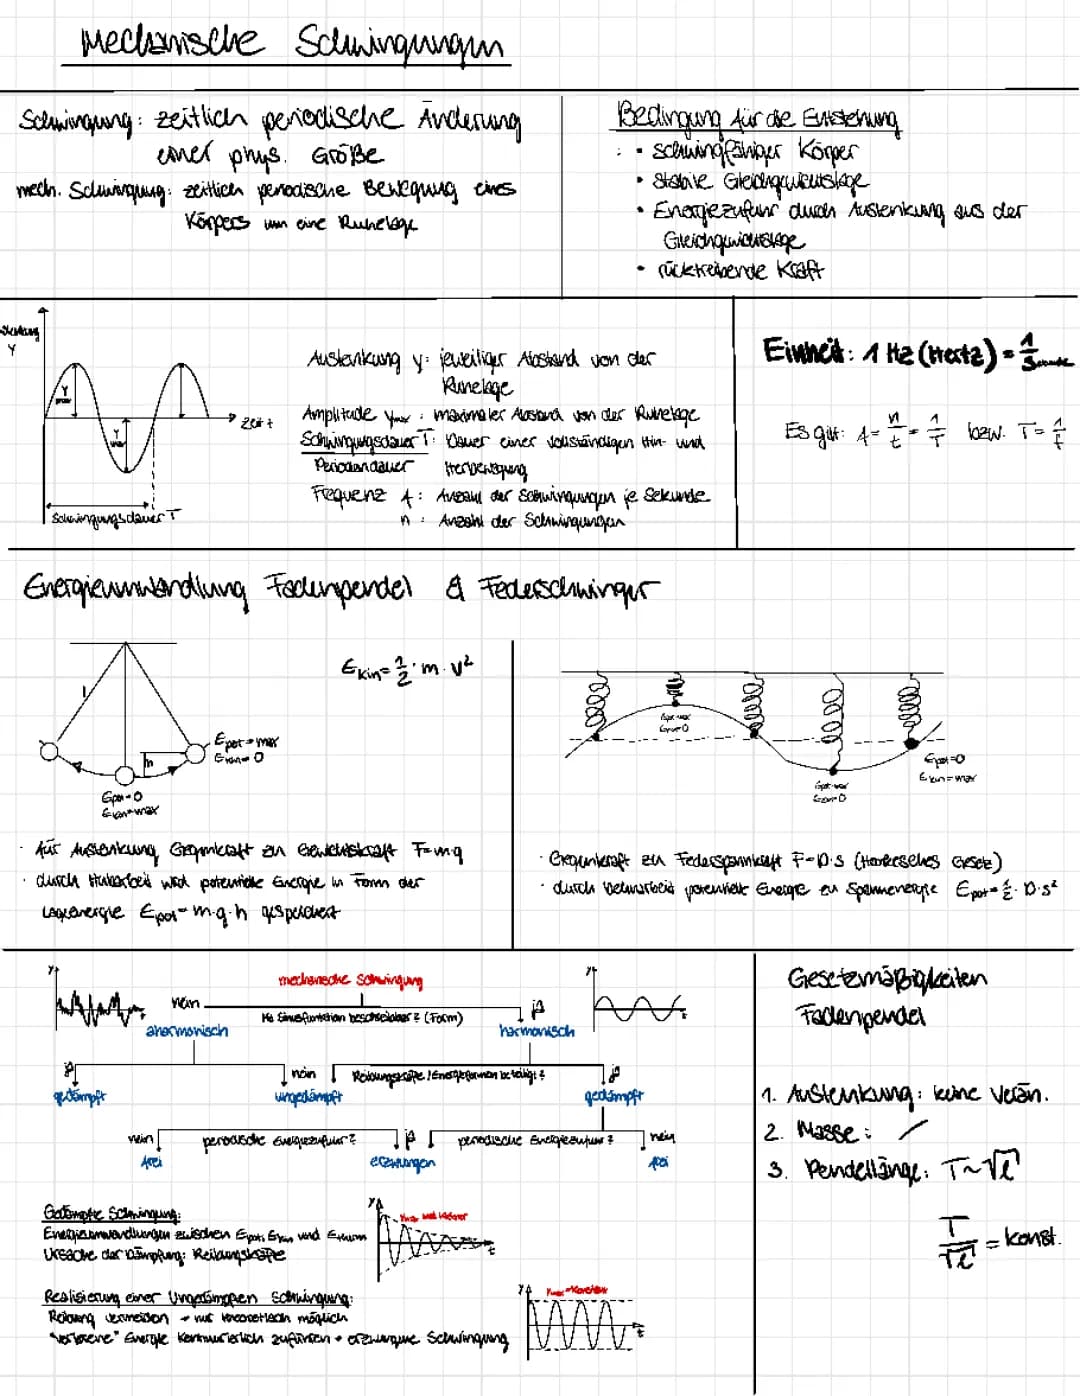 Mechanische Schwingungen
Schwingung: zeitlich periodische Änderung
einer phys. Größe
mech. Schwingung: zeitlich periodische Bewegung eines
Körpers um eine Ruhelage
Bedingung für die Entstehung
• schwingfähiger Körper
• stabile Gleichgewichtslage
• Energiezufuhr durch Auslenkung aus der
Gleichgewichtslage
• rücktreibende Kraft
y
y max
y max
Zeit t
Schwingungsdauer T
Auslenkung y: jeweiliger Abstand von der
Ruhelage
Amplitude ymax: maximaler Abstand von der Ruhelage
Schwingungsdauer T: Dauer einer vollständigen Hin- und
Periodendauer Herbewegung
Frequenz f: Anzahl der Schwingungen je Sekunde
n: Anzahl der Schwingungen
Einheit: 1 Hz (Hertz) = 1/Sekunde
Es gilt: f = n/t = 1/T bzw. T = 1/f
Energieumwandlung Fadenpendel & Federschwinger
Ekin = 1/2 · m · v²
l
h
Epot = max
Ekin = 0
Epot = 0
Ekin = max
· für Auslenkung Gegenkraft zu Gewichtskraft F=m·g
· durch Hubarbeit wird potentielle Energie in Form der
Lageenergie Epot = m·g·h gespeichert
Epot = max
Ekin = 0
Epot = max
Ekin = 0
Epot = 0
Ekin = max
· Gegenkraft zu Federspannkraft F=D·s (Hookesches Gesetz)
· durch Dehnarbeit potentielle Energie zu Spannenergie Epot = 1/2 · D·s²
mechanische Schwingung
Mit Sinusfunktion beschreibbar? (Form)
nein
ja
anharmonisch
harmonisch
y
y
t
Reibungskräfte / Energieformen beteiligt?
ja
nein
ja
gedämpft
ungedämpft
gedämpft
nein
periodische Energiezufuhr?
ja
periodische Energiezufuhr?
nein
frei
erzwungen
frei
Gedämpfte Schwingung:
Energieumwandlungen zwischen Epot, Ekin und Etherm
Ursache der Dämpfung: Reibungskräfte
y
ymax wird kleiner
t
Realisierung einer Ungedämpften Schwingung:
Reibung vermeiden → nur theoretisch möglich
"verlorene" Energie kontinuierlich zuführen → erzwungene Schwingung
y
ymax = konstant
t
Gesetzmäßigkeiten
Fadenpendel
1. Auslenkung: keine Verän.
2. Masse: /
3. Pendellänge: T~√l
T/√l = konst.